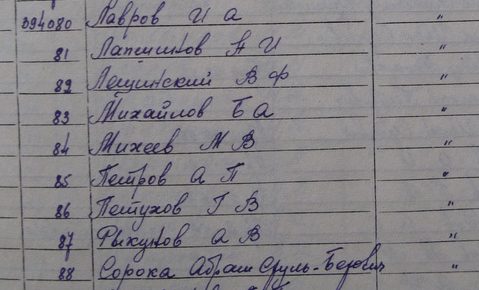 394080 Лавров И А "
81 Лапшинов Н И "
82 Лещинский В Ф "
83 Михайлов Б А "
84 Михеев М В "
85 Петров А П "
86 Петухов Г В "
87 Рыкунов А В "
88 Сорока Абрам Сруль-Берович "